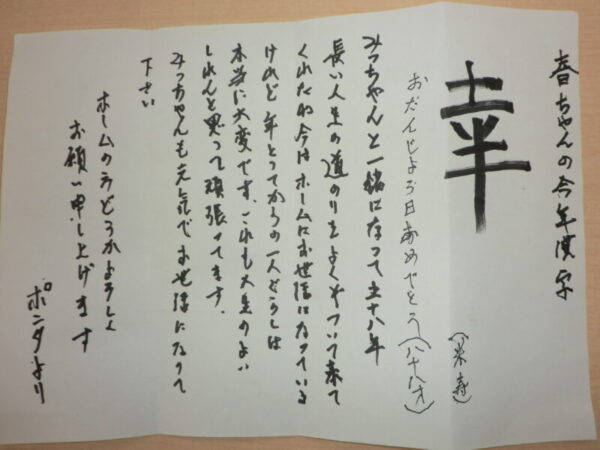 春ちゃんの今年漢字
幸
(米寿)
おたんじょう日おめでとう(八十八才)
みっちゃんと一緒になって五十八年
長い人生の道のりをよくぞついて来て
くれたね今はホームにお世話になっている
けれど年とってからの一人ぐらしは
本当に大変です、これも人生の
しれんと思って頑張ってます。
みっちゃんも元気でお世話になって
下さい
ホームの方どうかよろしく
お願い申し上げます
ポンタより